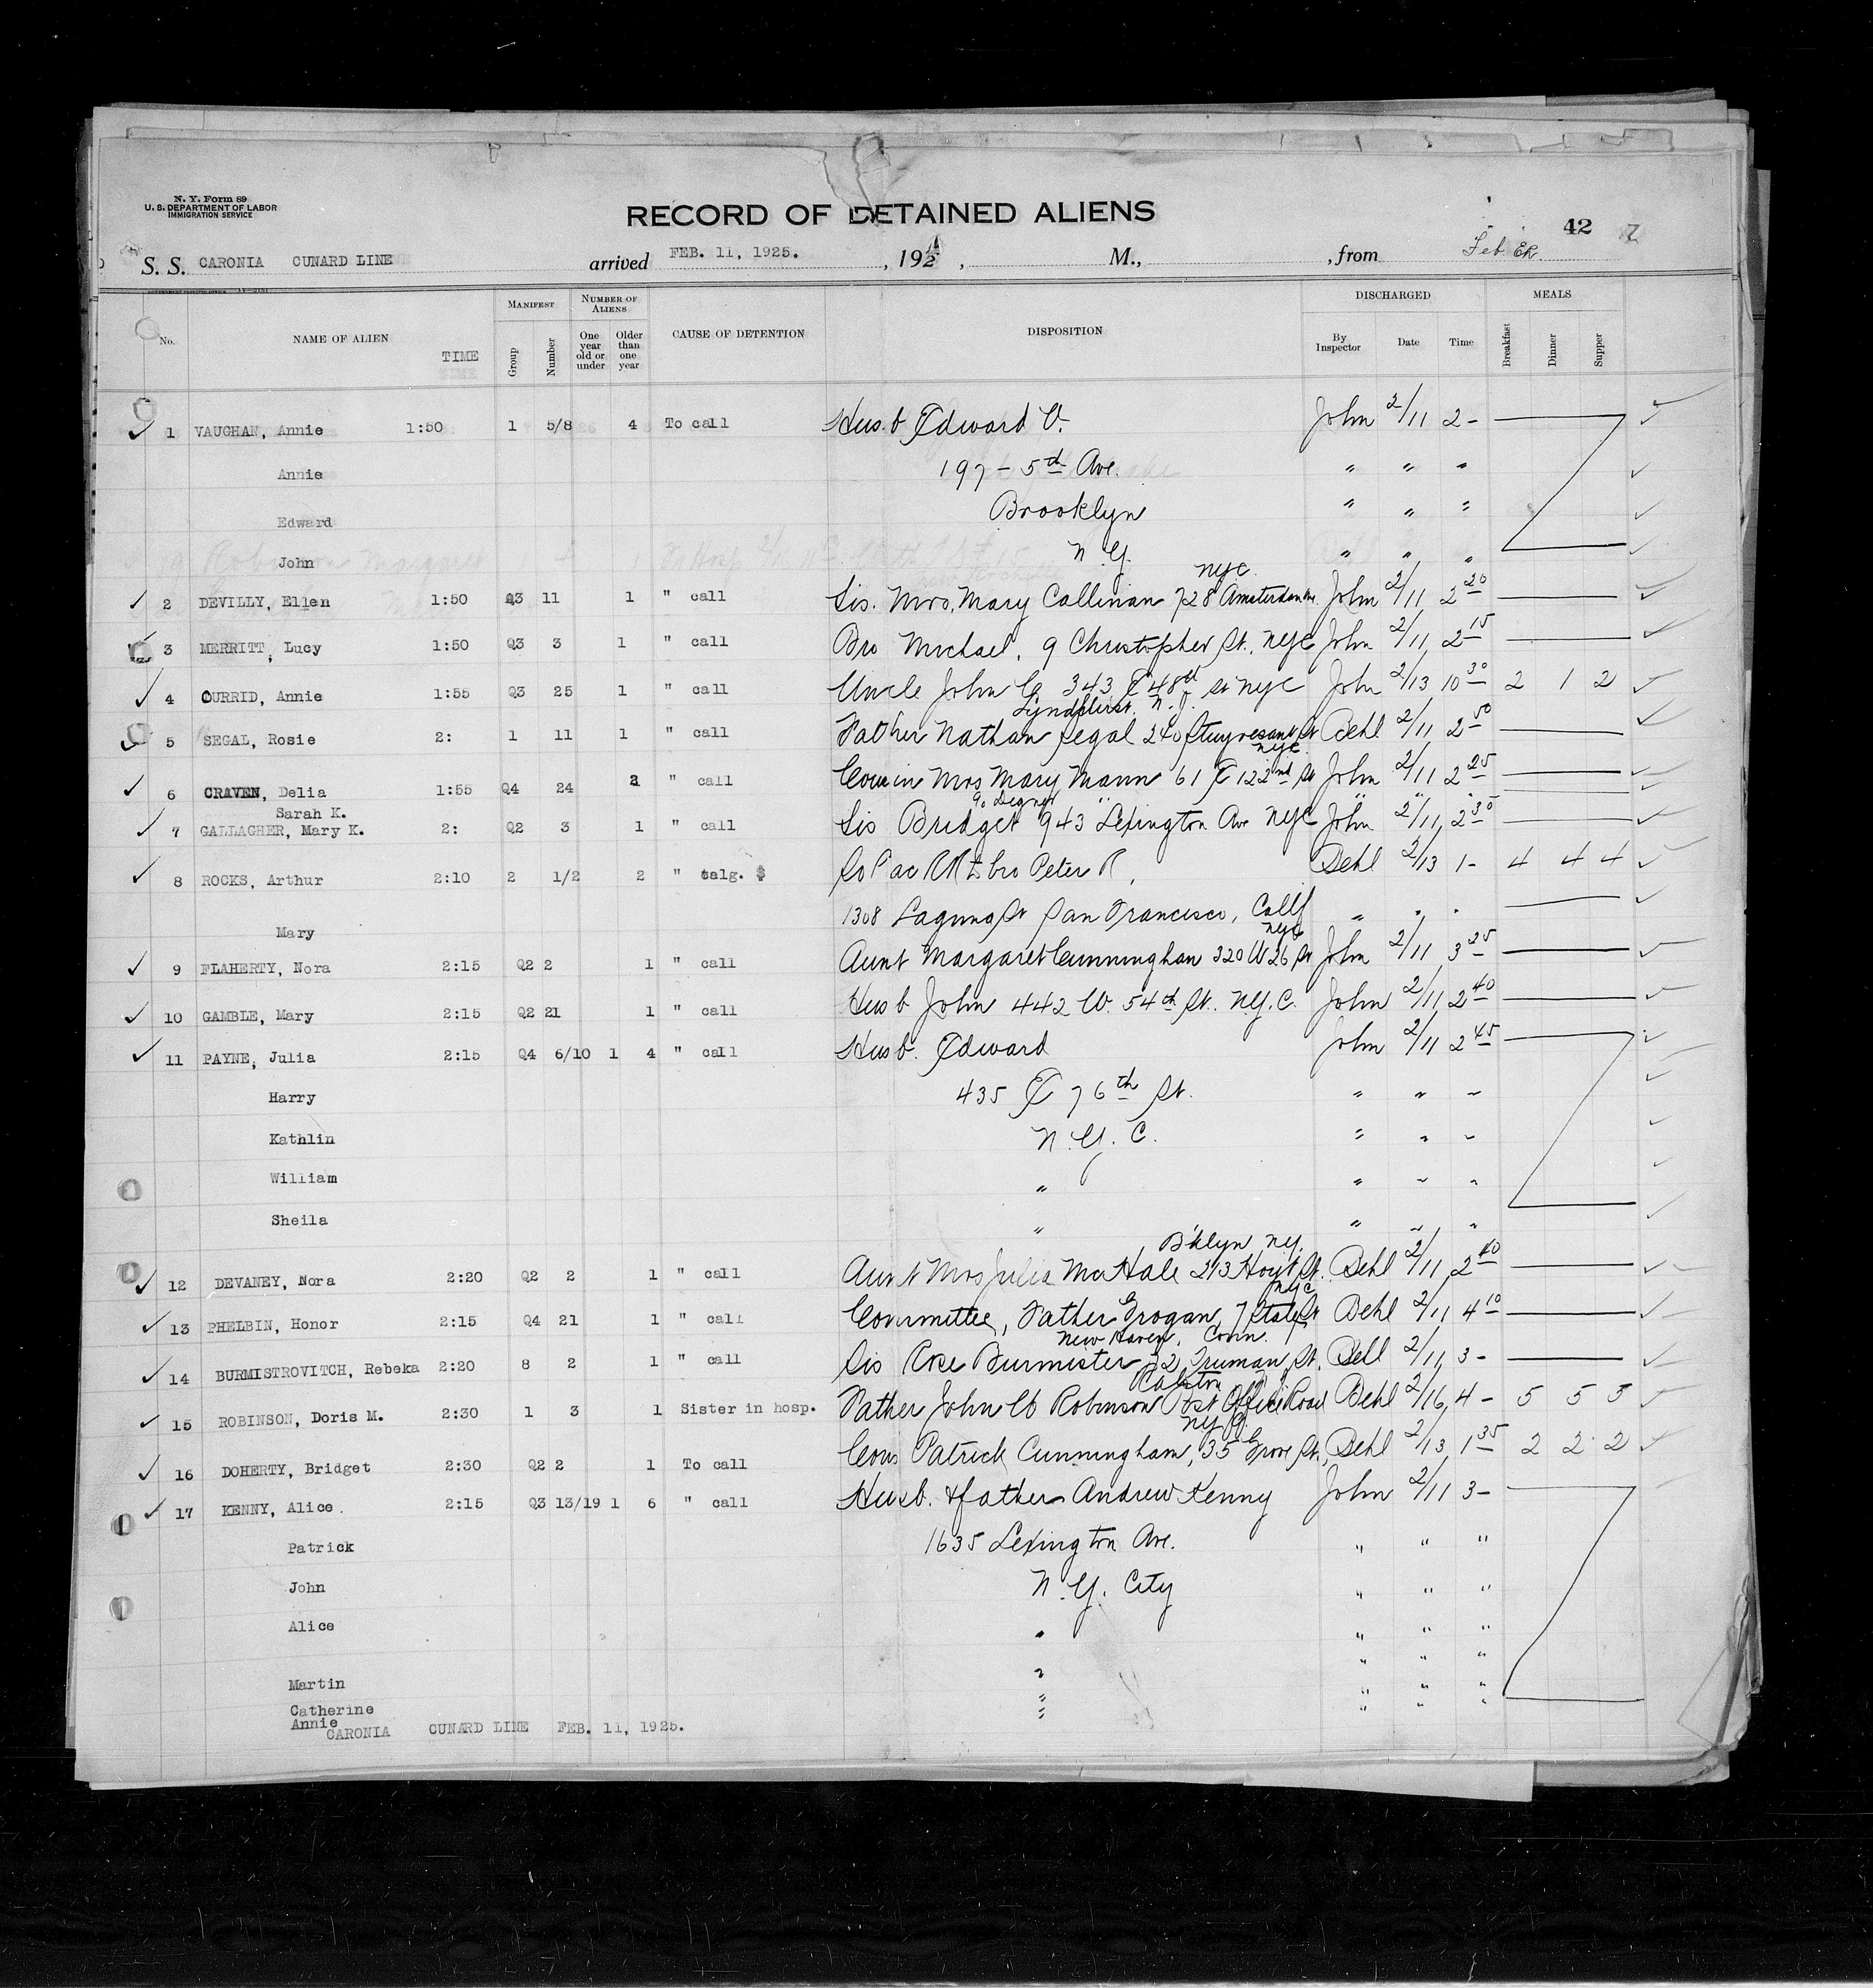 N. Y. Form 89
U. S. DEPARTMENT OF LABOR
IMMIGRATION SERVICE
RECORD OF DETAINED ALIENS
42
S. S. CARONIA CUNARD LINE arrived FEB. 11, 1925. , 192 , M., , from
No. NAME OF ALIEN TIME MANIFEST Group Number NUMBER OF ALIENS One year old or under Older than one year CAUSE OF DETENTION DISPOSITION DISCHARGED By Inspector Date Time MEALS Breakfast Dinner Supper
1 VAUGHAN, Annie 1:50 1 5/8 4 To call Husb Edward V. John 2/11 2-
Annie 197 - 5th Ave. " " "
Edward Brooklyn " " "
John N.Y. " " "
NYC
2 DEVILLY, Ellen 1:50 Q3 11 1 " call Sis. Mrs. Mary Callinan 728 Amsterdam Ave. John 2/11 2 20
3 MERRITT, Lucy 1:50 Q3 3 1 " call Bro Michael, 9 Christopher St., NYC John 2/11 2 15
4 CURRID, Annie 1:55 Q3 25 1 " call Uncle John C 343 E 48th St NYC John 2/13 10 30 2 1 2
Lyndhurst N.J.
5 SEGAL, Rosie 2: 1 11 1 " call Father Nathan Segal 240 Stuyvesant St Behl 2/11 2 50
NYC
6 CRAVEN, Delia 1:55 Q4 24 2 " call Cousin Mrs Mary Mann 61 E 122nd St John 2/11 2 25
Sarah K. " " "
7 GALLAGHER, Mary K. 2: Q2 3 1 " call Sis Bridget 943 Lexington Ave NYC John 2/11 2 30
8 ROCKS, Arthur 2:10 2 1/2 2 " talg. $ So Pac RR to bro Peter R, Behl 2/13 1- 4 4 4
Mary 1308 Laguna St San Francisco, Calif " " "
NYC
9 FLAHERTY, Nora 2:15 Q2 2 1 " call Aunt Margaret Cunningham 320 W 26 St John 2/11 3 25
10 GAMBLE, Mary 2:15 Q2 21 1 " call Husb John 442 W. 54th St. N.Y.C. John 2/11 2 40
11 PAYNE, Julia 2:15 Q4 6/10 1 4 " call Husb. Edward John 2/11 2 45
Harry 435 E 76th St. " " "
Kathlin N.Y.C. " " "
William " " " "
Sheila " " " "
B'klyn NY.
12 DEVANEY, Nora 2:20 Q2 2 1 " call Aunt Mrs Julia McHale 213 Hoyt St. Behl 2/11 2 40
NYC
13 PHELBIN, Honor 2:15 Q4 21 1 " call Committee, Father Grogan, 7 State St Behl 2/11 4 10
New Haven, Conn.
14 BURMISTROVITCH, Rebeka 2:20 8 2 1 " call Sis Rose Burmister 72 Truman St. Behl 2/11 3-
15 ROBINSON, Doris M. 2:30 1 3 1 Sister in hosp. Father John W Robinson Post Office Road Behl 2/16 4- 5 5 5
16 DOHERTY, Bridget 2:30 Q2 2 1 To call Cous Patrick Cunningham, 35 Grove St., Behl 2/13 1 35 2 2 2
17 KENNY, Alice 2:15 Q3 13/19 1 6 " call Husb. & father Andrew Kenny John 2/11 3-
Patrick 1635 Lexington Ave. " " "
John N.Y. City " " "
Alice " " " "
Martin " " " "
Catherine " " " "
Annie " " " "
CARONIA CUNARD LINE FEB. 11, 1925.